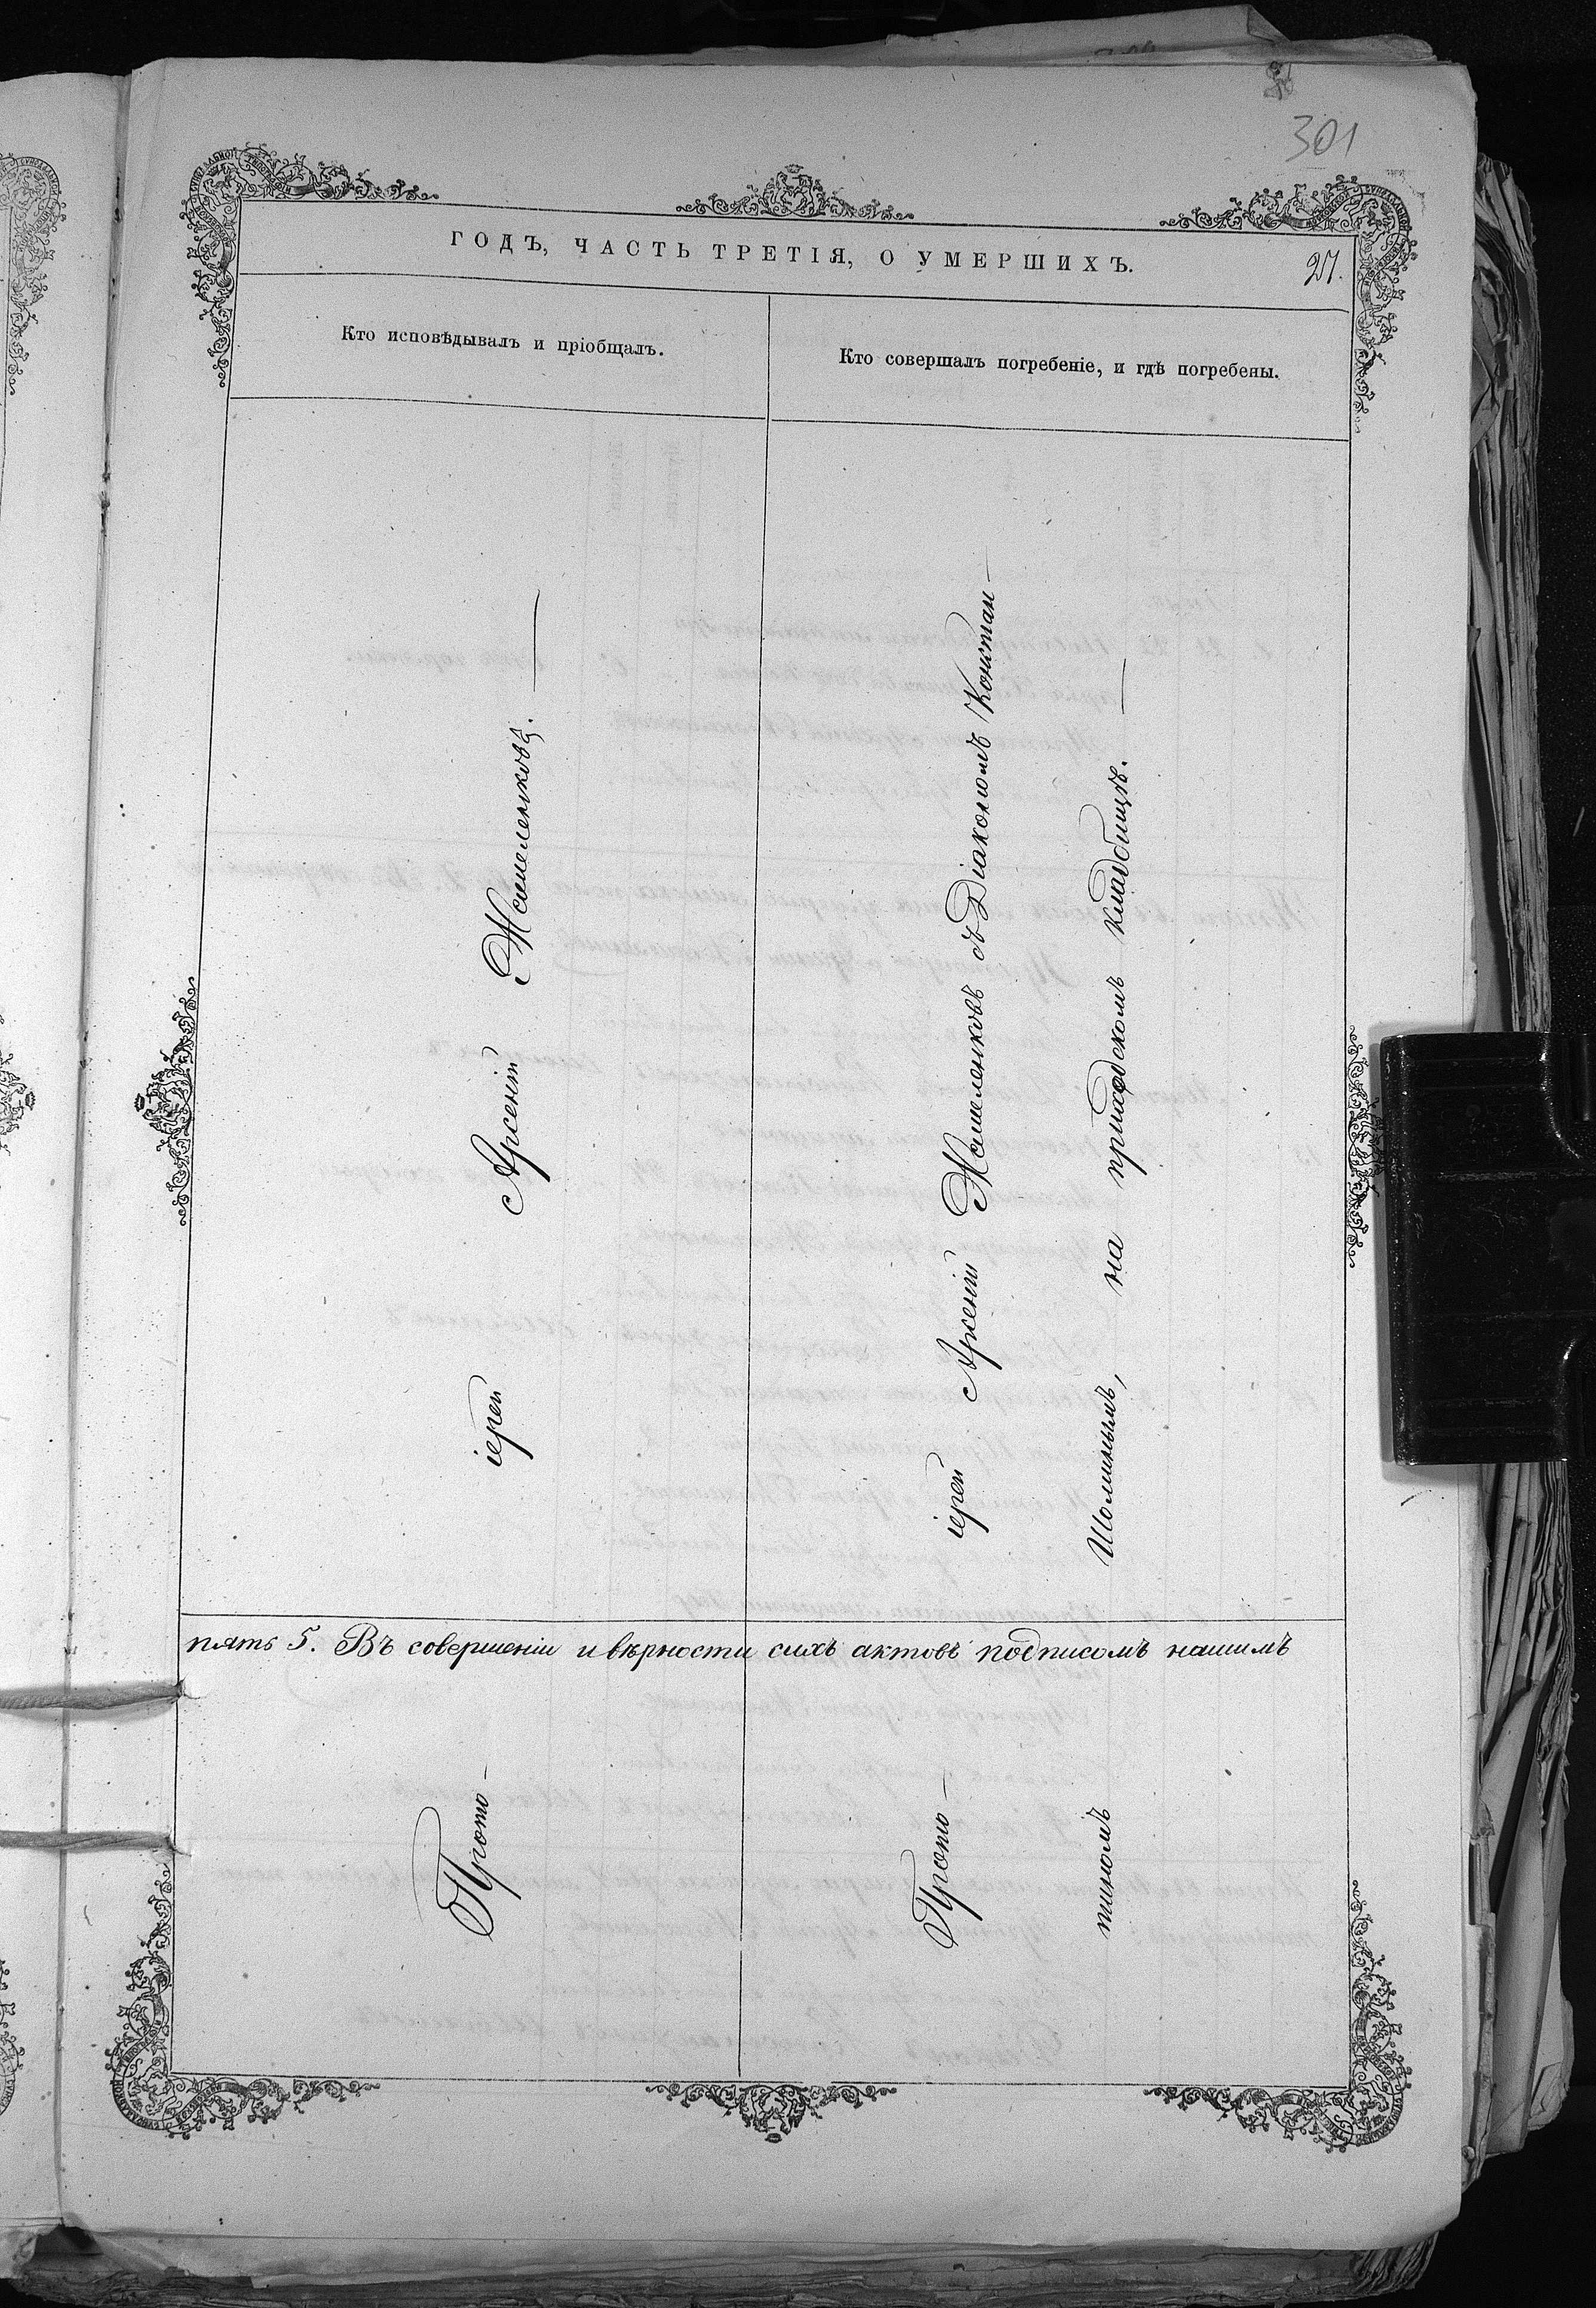 301
ГОДЪ, ЧАСТЬ ТРЕТІЯ, О УМЕРШИХЪ.
27.
Кто исповѣдывалъ и пріобщалъ.
Кто совершалъ погребеніе, и гдѣ погребены.
Прото-
іерей Арсеній
Прото-
іерей Арсеній съ Діакономъ Констан-
тиномъ Шолинымъ, на приходскомъ кладбищѣ.
пять 5. Въ совершеніи и вѣрности сихъ актовъ подписомъ нашимъ